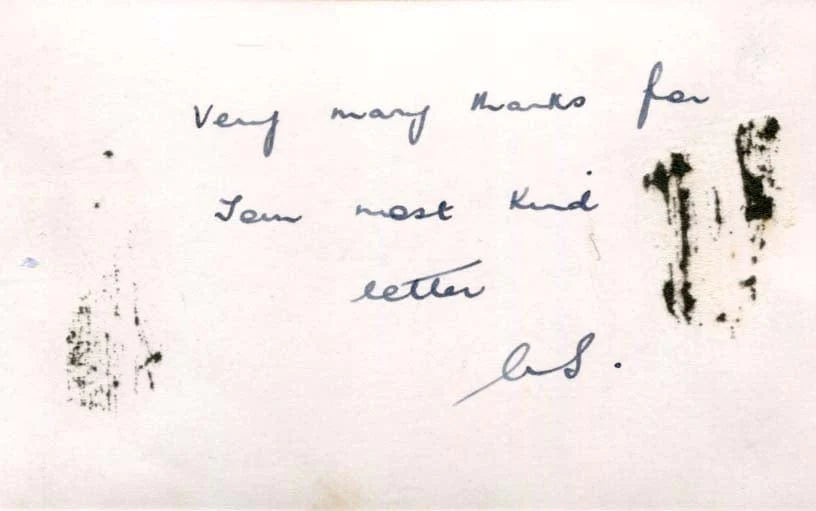 Very many thanks for
Your most kind
letter